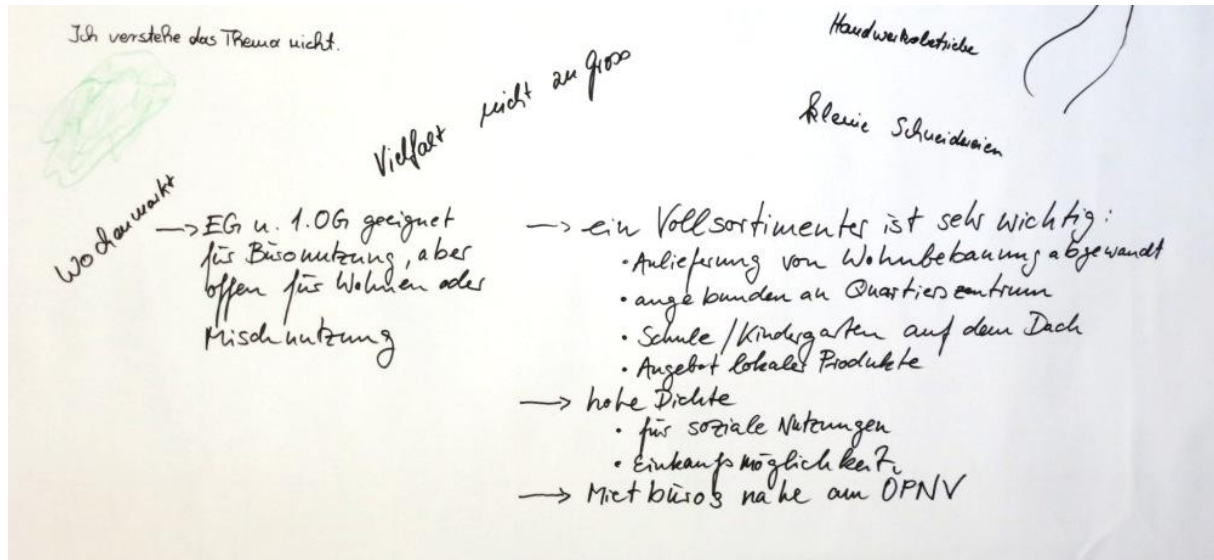 Ich verstehe das Thema nicht.
Handwerksbetriebe
Vielfalt nicht zu gross
kleine Schneidereien
Wochenmarkt
→ EG u. 1.OG geeignet
für Büronutzung, aber
offen für Wohnen oder
Mischnutzung
→ ein Vollsortimenter ist sehr wichtig:
• Anlieferung von Wohnbebauung abgewandt
• angebunden an Quartierszentrum
• Schule/Kindergarten auf dem Dach
• Angebot lokaler Produkte
→ hohe Dichte
• für soziale Nutzungen
• Einkaufsmöglichkeit.
→ Mietbüros nahe am ÖPNV